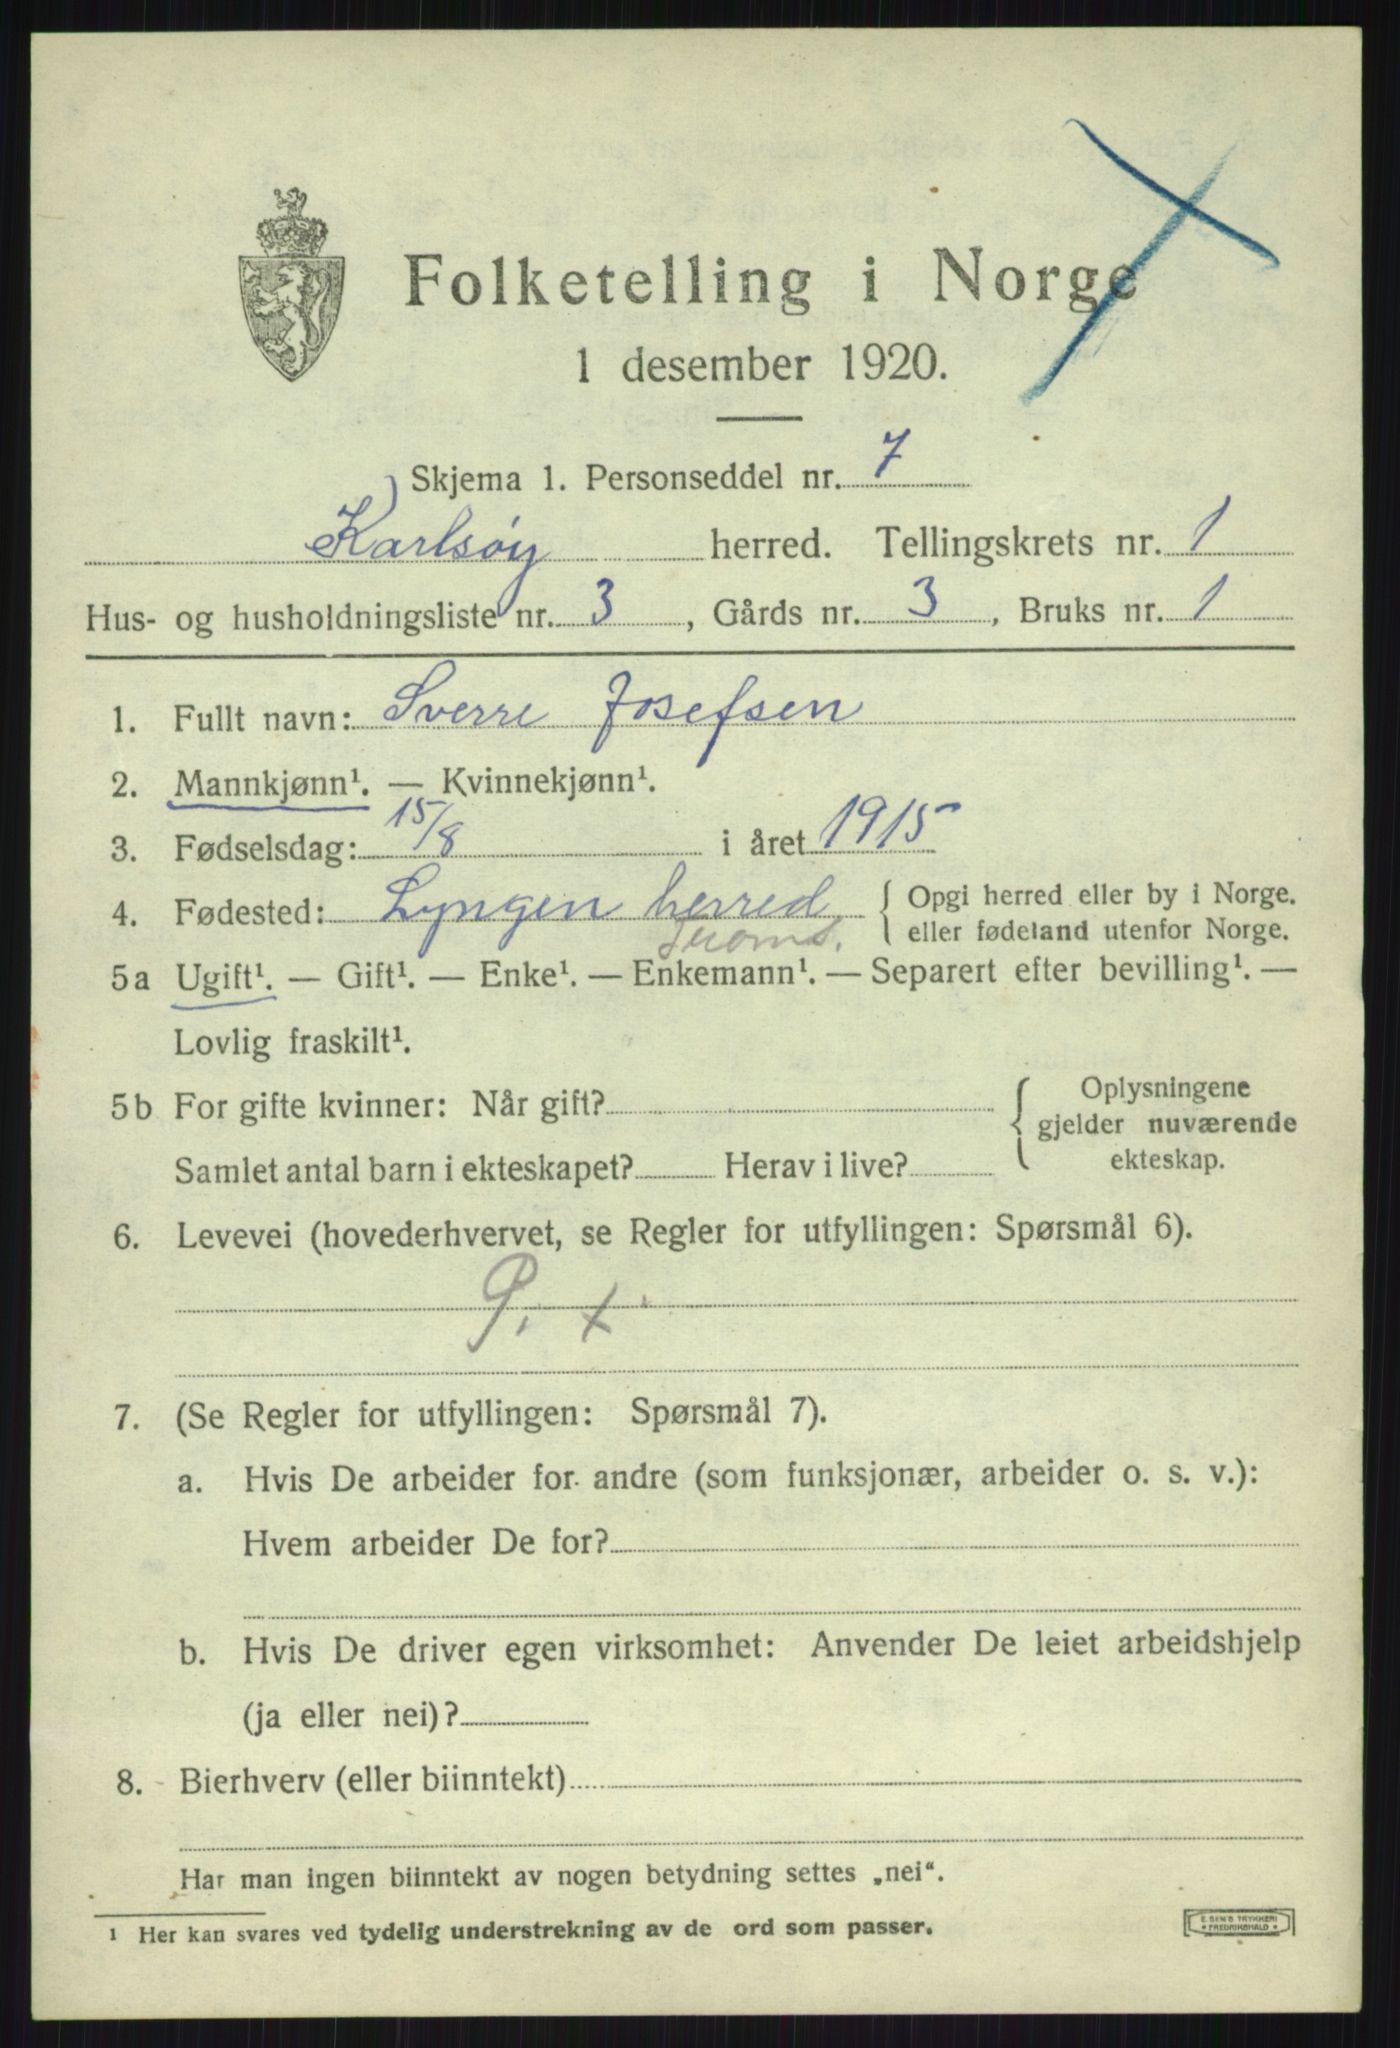 Folketelling i Norge
1 desember 1920.
Skjema 1. Personseddel nr. 7
Karlsøy herred. Tellingskrets nr. 1
Hus- og husholdningsliste nr. 3, Gårds nr. 3, Bruks nr. 1
1. Fullt navn: Sverre Josefsen
2. Mannkjønn¹. — Kvinnekjønn¹.
3. Fødselsdag: 15/8 i året 1915
4. Fødested: Lyngen herred { Opgi herred eller by i Norge.
Troms. eller fødeland utenfor Norge.
5a Ugift¹. — Gift¹. — Enke¹. — Enkemann¹. — Separert efter bevilling¹. —
Lovlig fraskilt¹.
5b For gifte kvinner: Når gift? { Oplysningene
gjelder nuværende
Samlet antal barn i ekteskapet? Herav i live? ekteskap.
6. Levevei (hovederhvervet, se Regler for utfyllingen: Spørsmål 6).
P. x
7. (Se Regler for utfyllingen: Spørsmål 7).
a. Hvis De arbeider for andre (som funksjonær, arbeider o. s. v.):
Hvem arbeider De for?
b. Hvis De driver egen virksomhet: Anvender De leiet arbeidshjelp
(ja eller nei)?
8. Bierhverv (eller biinntekt)
Har man ingen biinntekt av nogen betydning settes „nei“.
¹ Her kan svares ved tydelig understrekning av de ord som passer.
E. SEM'S TRYKKERI
FREDRIKSHALD